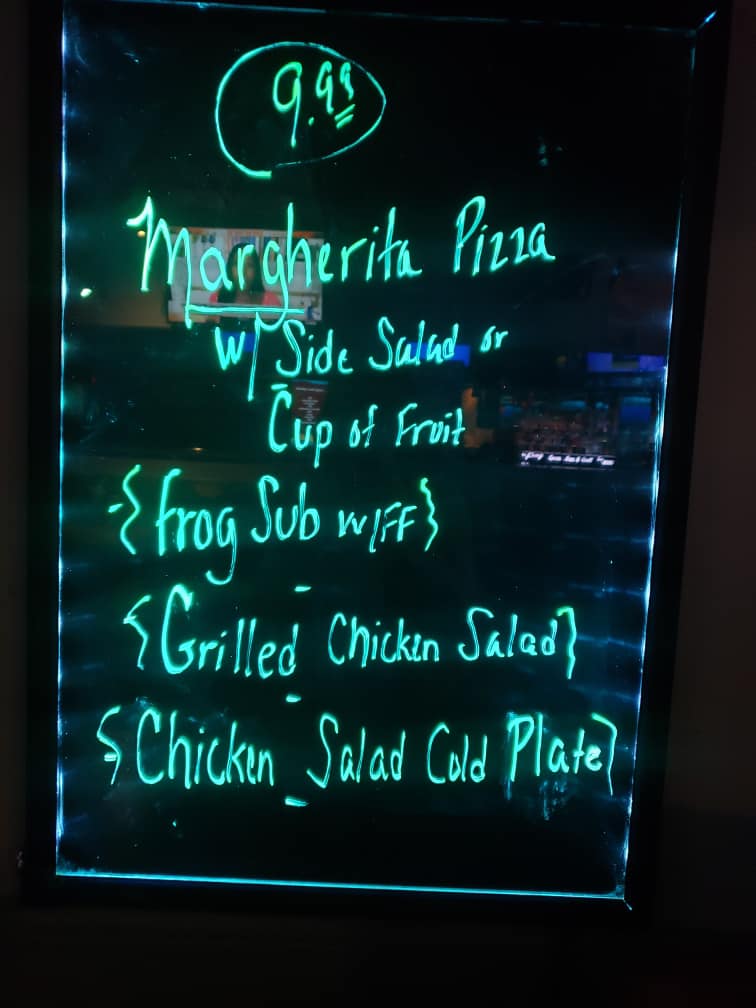 9.99
Margherita Pizza
w/ Side Salad or
Cup of Fruit
{Frog Sub w/FF}
{Grilled Chicken Salad}
{Chicken Salad Cold Plate}